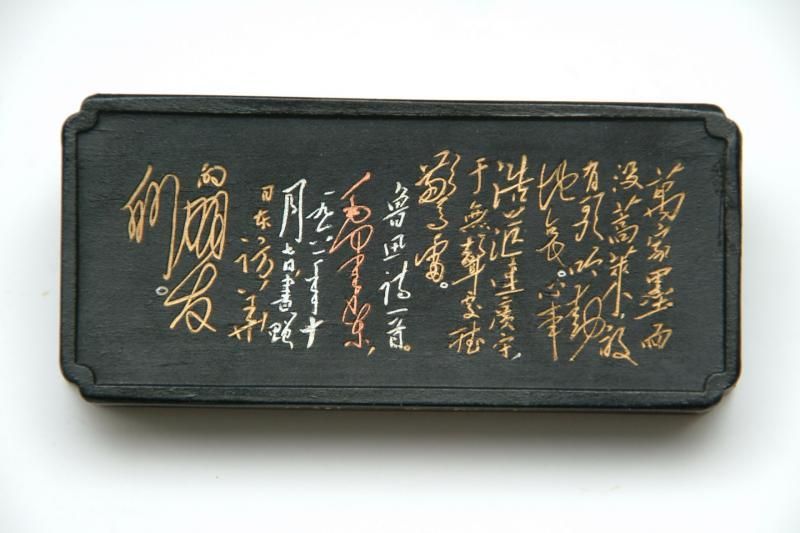 萬家墨面
没蒿萊,敢
有歌吟動
地哀。心事
浩茫連廣宇,
于無聲處聽
驚雷。
魯迅詩一首。
毛澤東
一九六一年十
月七日,書贈
日本訪華
的朋友
們。